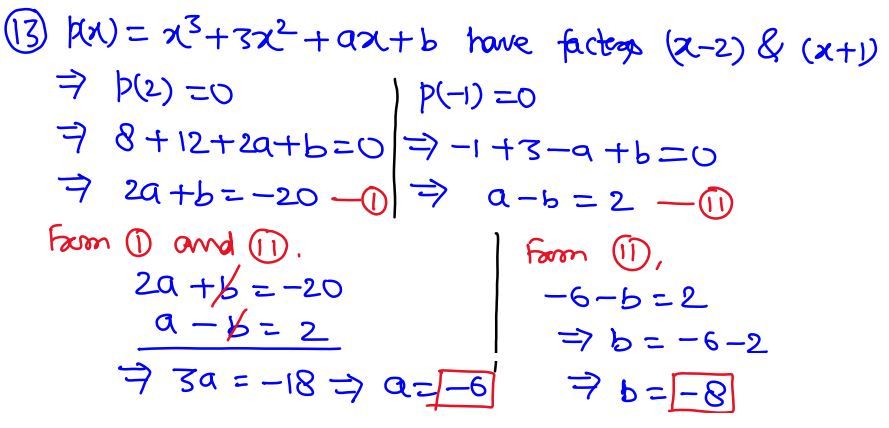 (13) p(x) = x³ + 3x² + ax + b have factors (x-2) & (x+1)
⇒ p(2) = 0
⇒ 8 + 12 + 2a + b = 0
⇒ 2a + b = -20 — (I)
p(-1) = 0
⇒ -1 + 3 - a + b = 0
⇒ a - b = 2 — (II)
From (I) and (II).
2a + b = -20
a - b = 2
⇒ 3a = -18 ⇒ a = -6
From (II),
-6 - b = 2
⇒ b = -6 - 2
⇒ b = -8